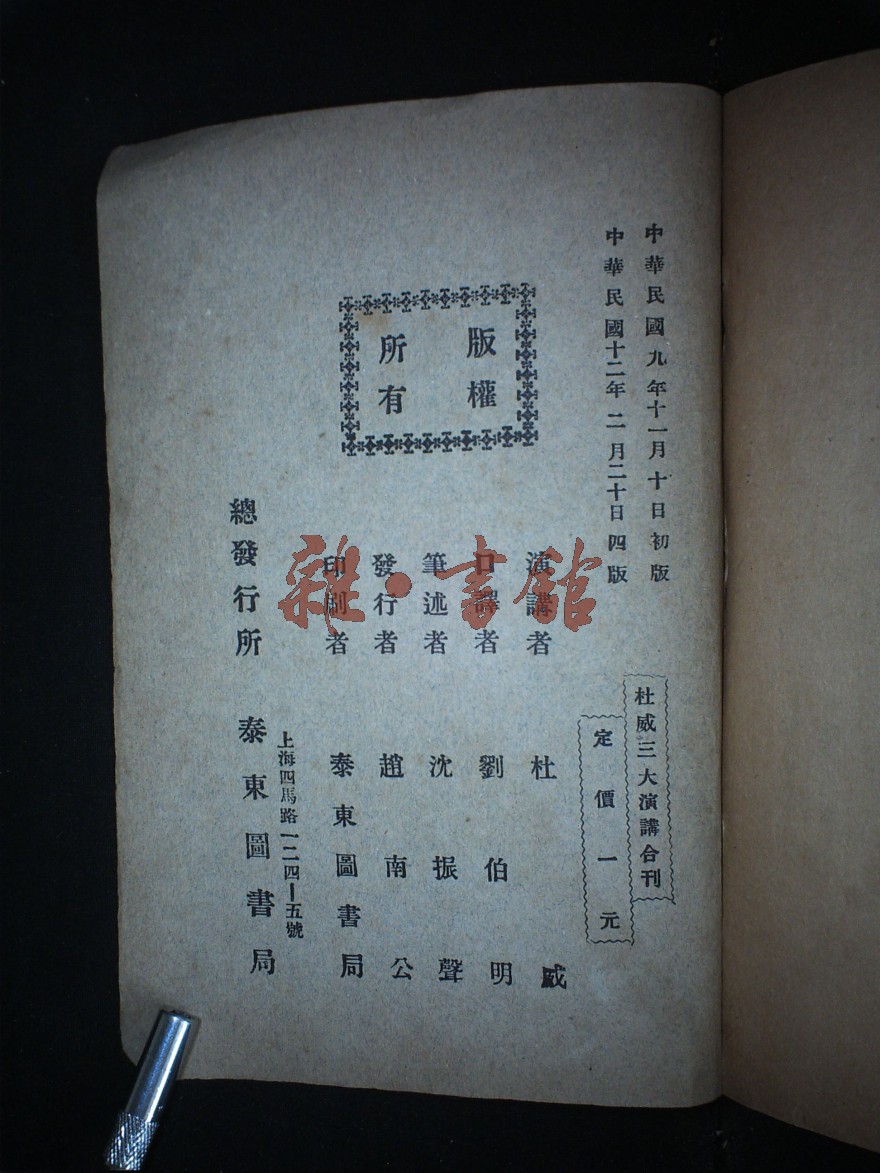 中華民國九年十一月十日初版
中華民國十二年二月二十日四版
杜威三大演講合刊
定價一元
版權
所有
演講者 杜威
口譯者 劉伯明
筆述者 沈振聲
發行者 趙南公
印刷者 泰東圖書局
上海四馬路一二四—五號
總發行所 泰東圖書局
雜·書館